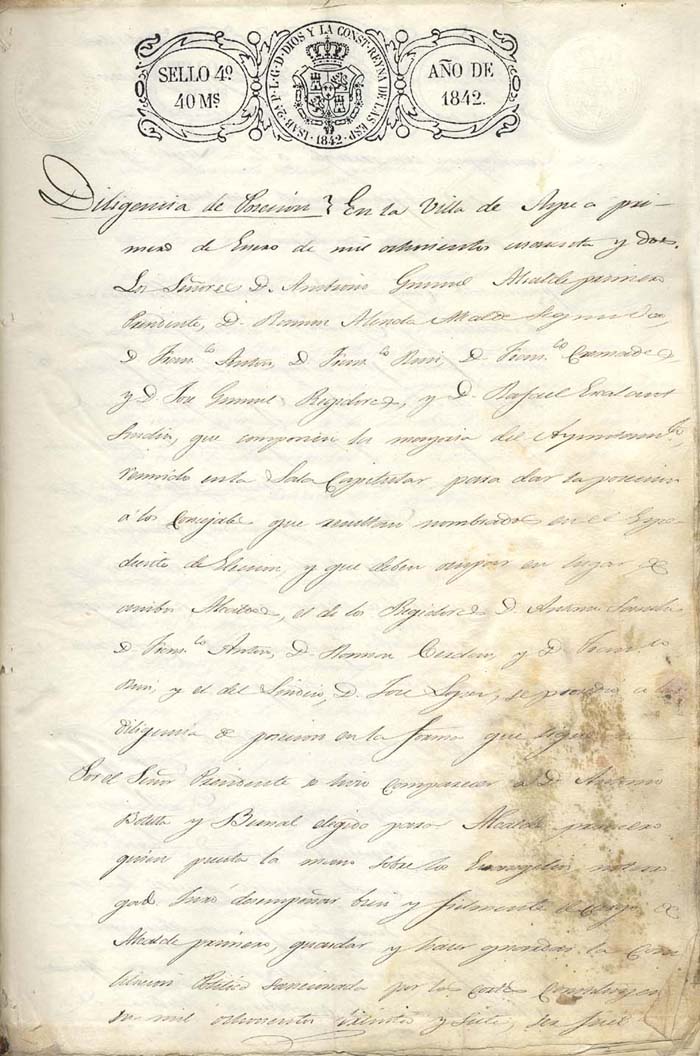 SELLO 4º
40 Ms
ISAB. 2ª P. L. G. D. DIOS Y LA CONST. REYNA DE LAS ESP.
1842
AÑO DE
1842.
Diligencia de Posecion } En la Villa de Aspe a pri-
mero de Enero de mil ochocientos cuarenta y dos.
Los Señores D. Antonio Gumiel Alcalde primero
Presidente, D. Ramon Alenda Alcalde Segundo,
D. Franco Anton, D. Franco D. Franco
y D. Jose Gumiel Regidores, y D. Rafael
Sindico, que componen la mayoria del Ayuntamto,
reunido en la Sala Capitular para dar la posecion
á los Concejales que resultan nombrados en el Espe-
diente de Eleccion, y que deben ocupar en lugar de
ambos Alcaldes, el de los Regidores D. Antonio
D. Franco Anton, D. Ramon y D. Franco
y el del Sindico, D. Jose Lopez, se procedio a la
diligencia de posecion en la forma que sigue
Por el Señor Presidente se hizo comparecer a D. Antonio
Botella y Bernal elegido para Alcalde primero
quien puesta la mano sobre los Evangelios
juró desempeñar bien y fielmente el cargo de
Alcalde primero, guardar y hacer guardar la Cons
titucion Politica sancionada por las Cortes Constituyen
en mil ochocientos treinta y siete, ser fiel